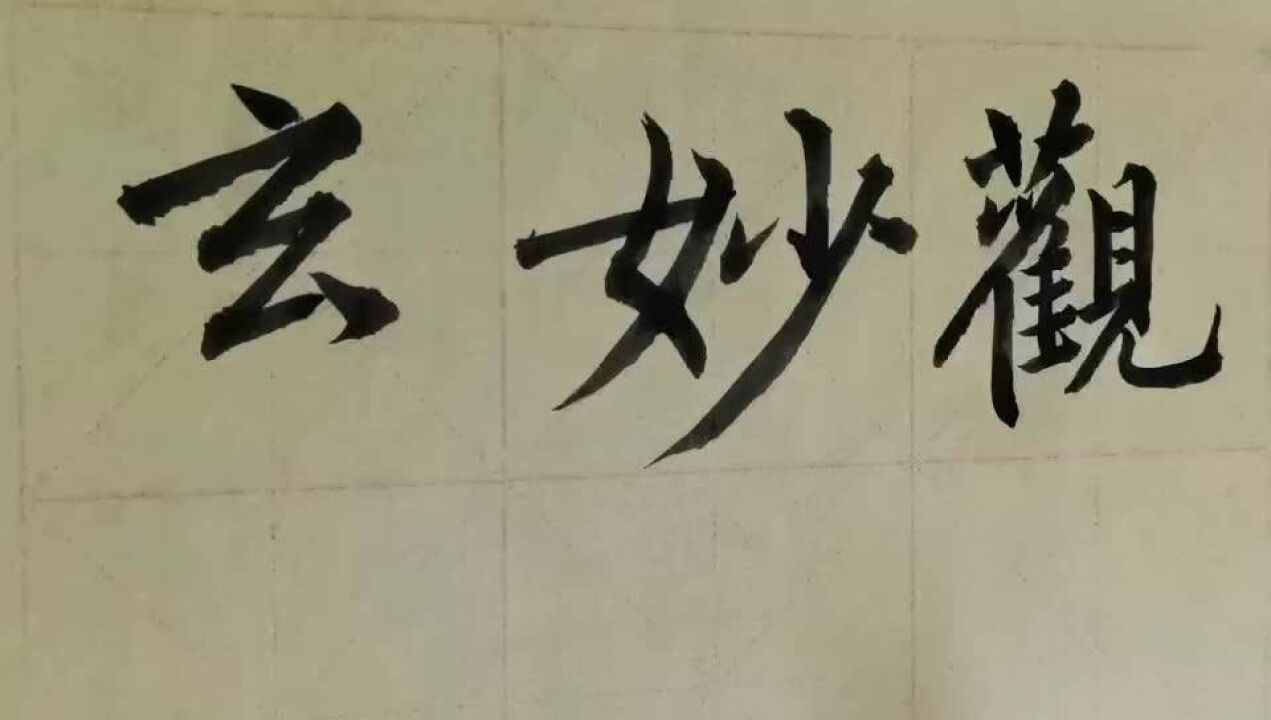 玄妙觀